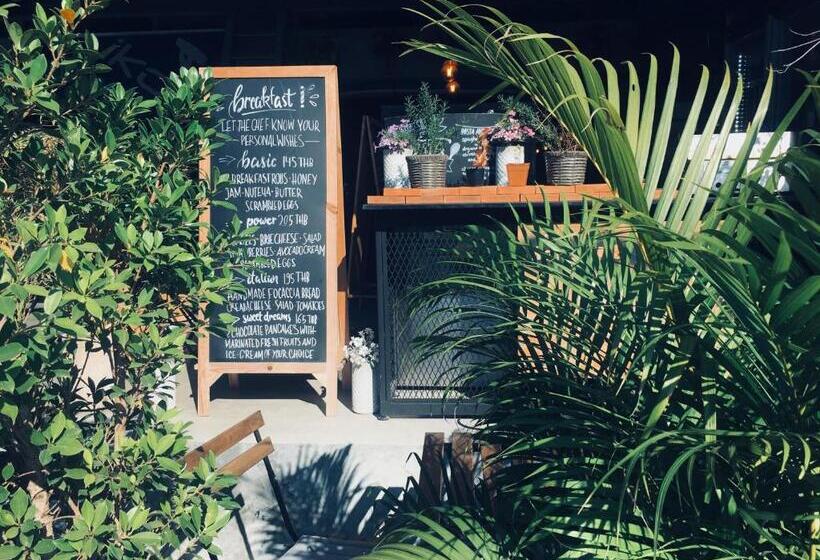 breakfast!
LET THE CHEF KNOW YOUR
PERSONAL WISHES
basic 145 THB
BREAKFAST ROLLS · HONEY
JAM · NUTELLA · BUTTER
SCRAMBLED EGGS
power 205 THB
BRIE CHEESE · SALAD
BERRIES · AVOCADO CREAM
EGGS
italian 195 THB
HANDMADE FOCACCIA BREAD
CREAMCHEESE SALAD TOMATOES
sweet dreams 165 THB
CHOCOLATE PANCAKES WITH
MARINATED FRESH FRUITS AND
ICE-CREAM OF YOUR CHOICE
PASTA